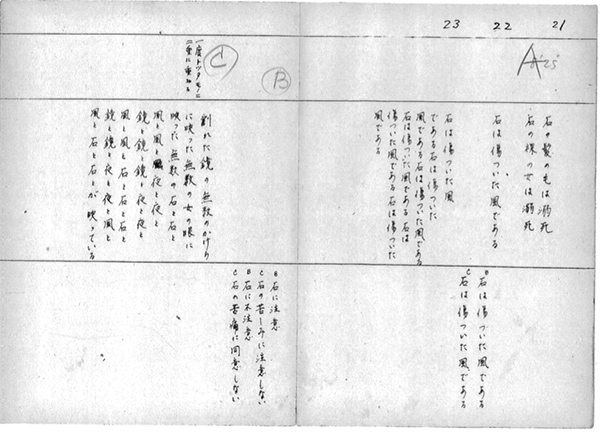 21
22
23
A
石の髪の毛は溺死
石の裸の女は溺死
石は傷ついた風である
石は傷ついた風
である石は傷ついた
風である石は傷ついた風である
石は傷ついた風である石は
傷ついた風である石は傷ついた
風である
B 石は傷ついた風である
C 石は傷ついた風である
B
C
一度トッタモノに
二重に重ねる
割れた鏡の無数のかけら
に映った無数の女の眼に
映った無数の石と石と
風と風と夜と夜と
鏡と鏡と鏡と夜と夜と
風と風と石と石と石と
鏡と鏡と夜と夜と風と
風と石と石とが映っている
B 石に注意
C 石の苦しみに注意しない
B 石に不注意
C 石の苦痛に同意しない